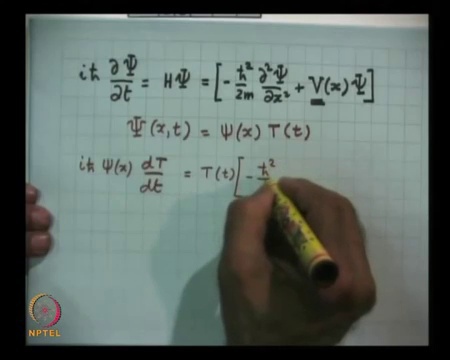 iħ ∂Ψ/∂t = HΨ = [-ħ²/2m ∂²Ψ/∂x² + V(x)Ψ]
Ψ(x,t) = ψ(x) T(t)
iħ ψ(x) dT/dt = T(t)[-ħ²
NPTEL